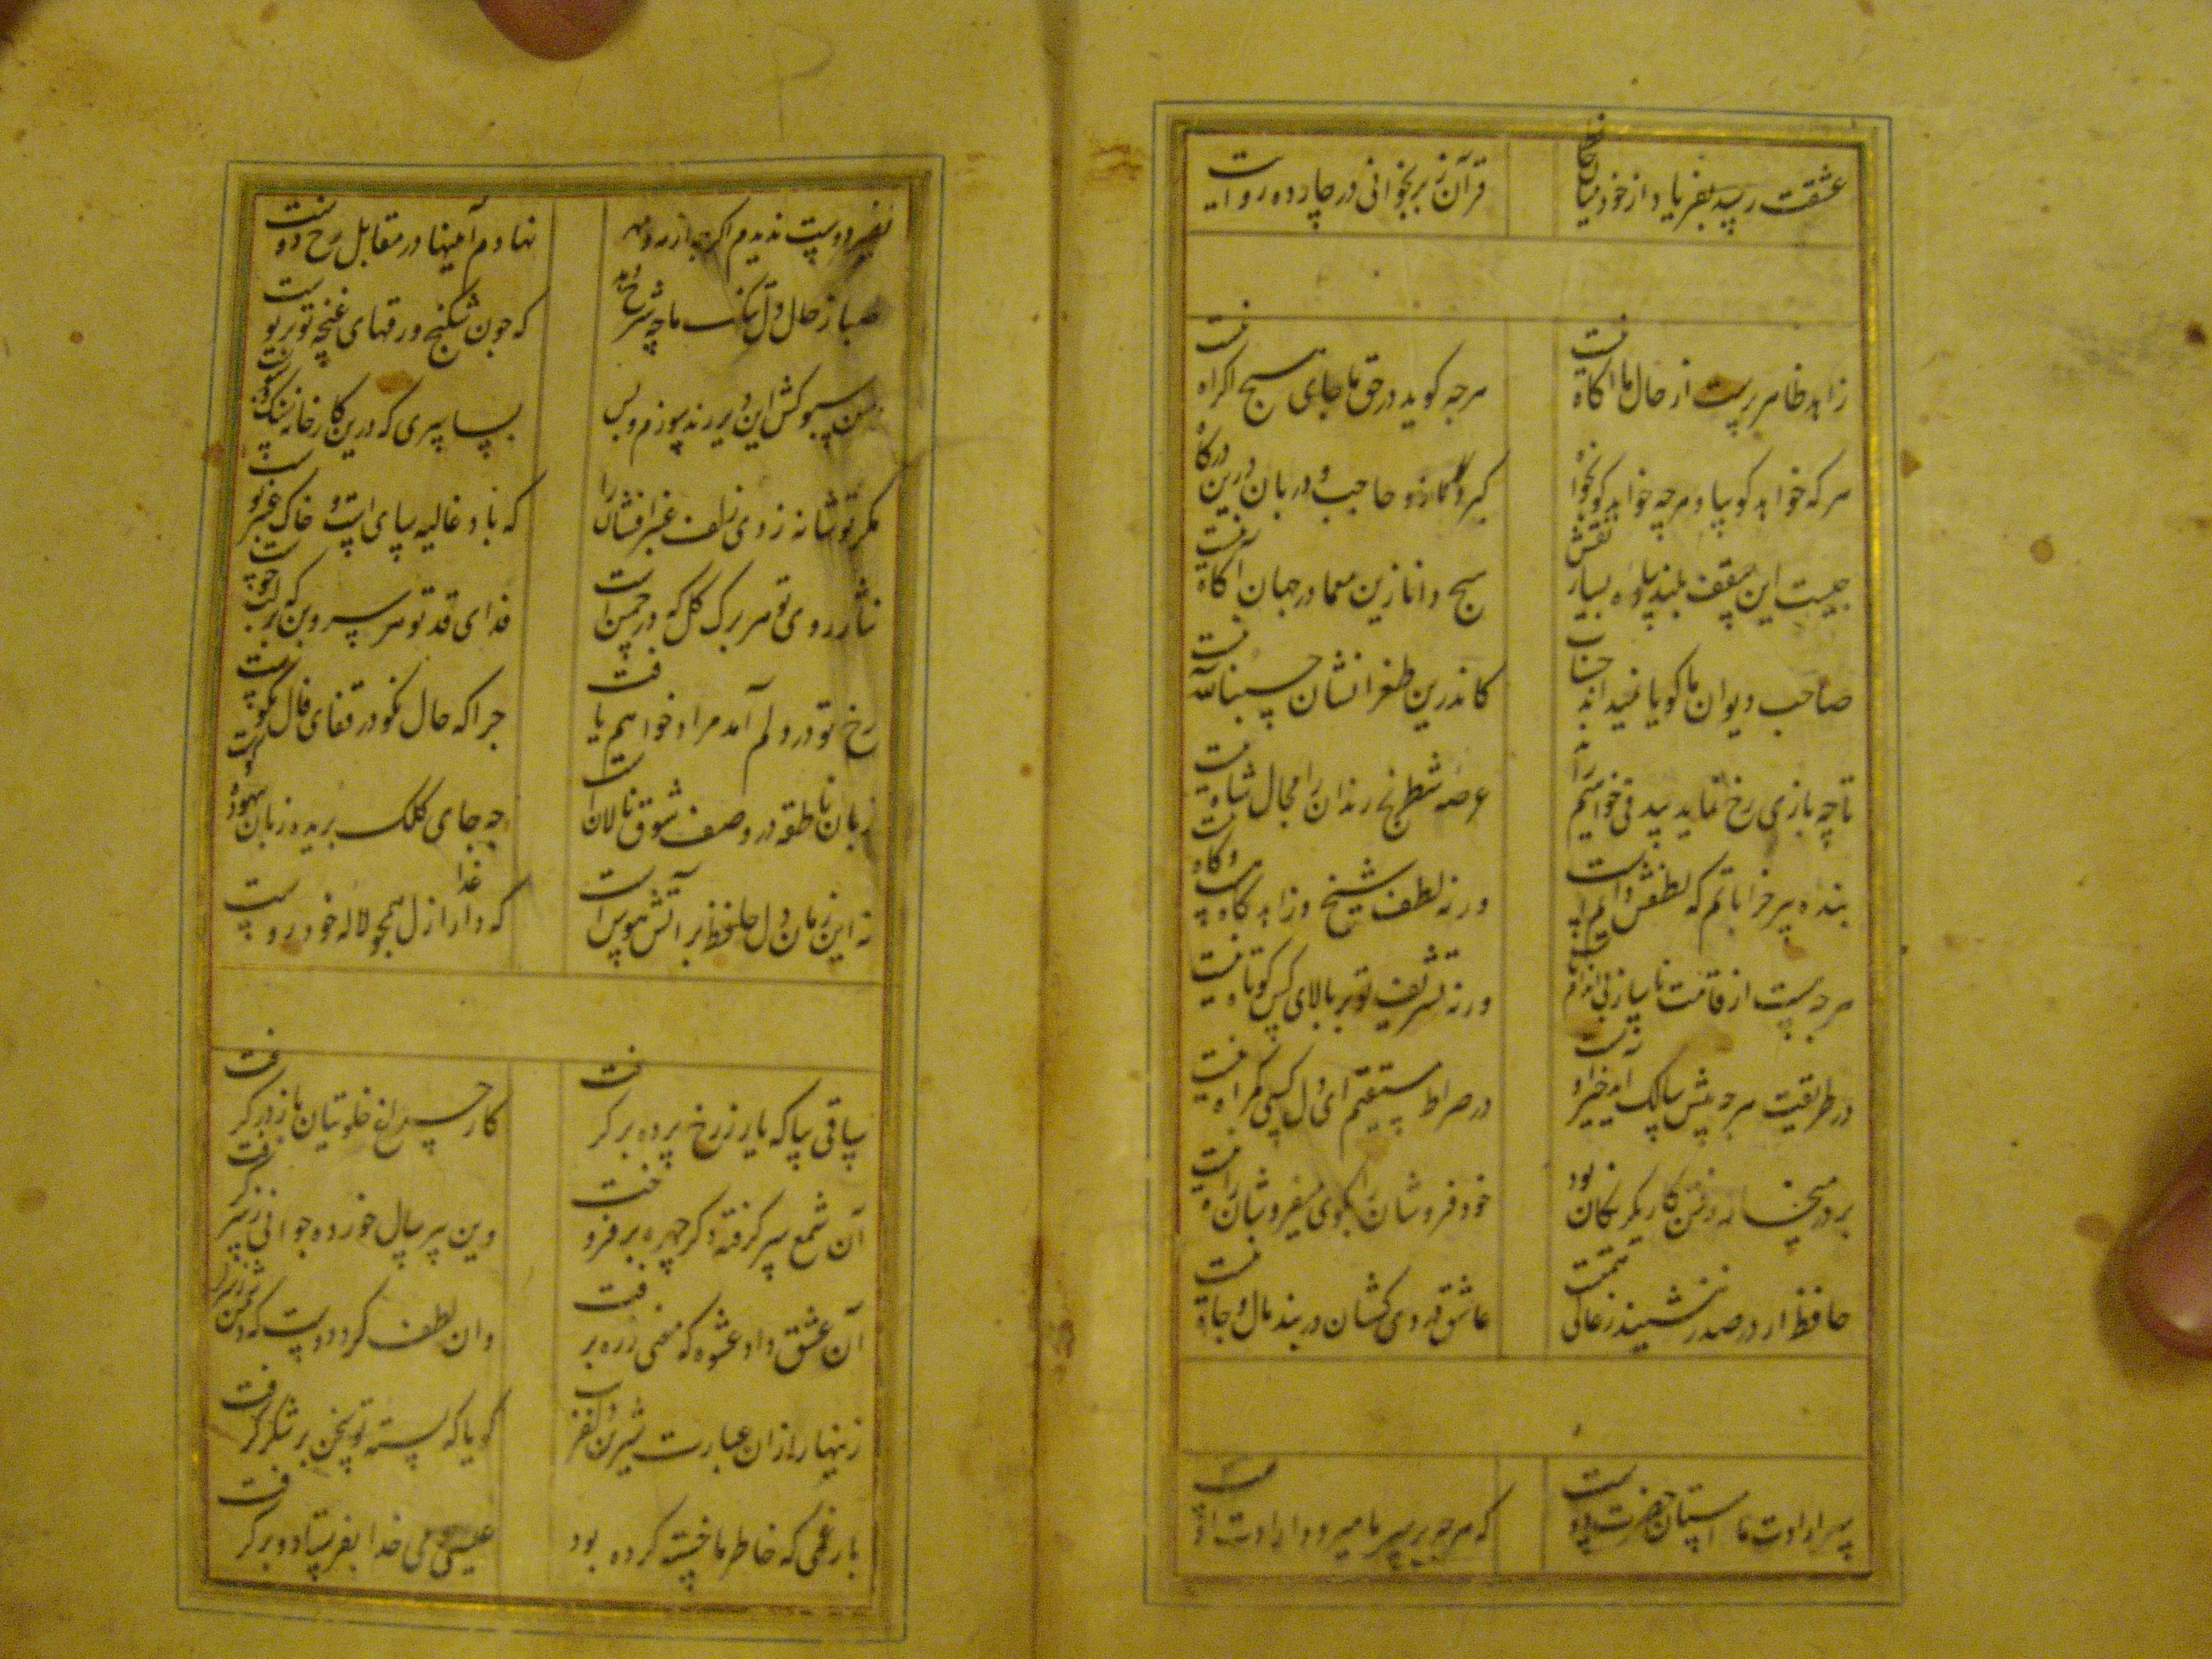 عشقت رسد بفریاد از خود بسان حافظ
قرآن ز بر بخوانی در چارده روایت
زاهد ظاهر پرست از حال ما آگاه نیست
هرچه کوید در حق ما جای هیچ اکراه نیست
هر که خواهد کو بیا و هر چه خواهد کو بخواه
کبر و ناز و حاجب و دربان درین درگاه نیست
چیست این سقف بلند ساده بسیار نقش
هیچ دانا زین معما در جهان آگاه نیست
صاحب دیوان ما کویا نمیداند حساب
کاندرین طغرا نشان حسبة لله نیست
تا چه بازی رخ نماید بیدقی خواهیم راند
عرصه شطرنج رندان را مجال شاه نیست
بنده پیر خراباتم که لطفش دایم است
ورنه لطف شیخ و زاهد کاه هست و کاه نیست
هرچه هست از قامت ناساز بی اندام ماست
ورنه تشریف تو بر بالای کس کوتاه نیست
در طریقت هرچه پیش سالک آید خیر اوست
در صراط مستقیم ای دل کسی کمراه نیست
بر در میخانه رفتن کار یکرنکان بود
خودفروشان را بکوی میفروشان راه نیست
حافظ ار در صدر ننشیند ز عالی همتست
عاشق دردی کشان در بند مال و جاه نیست
سر ارادت ما و آستان حضرت دوست
که هرچه بر سر ما میرود ارادت اوست
نظیر دوست ندیدم اکرچه از مه و مهر
نهادم آینها در مقابل رخ دوست
صبا ز حال دل تنک ما چه شرح دهد
که چون شکنج ورقهای غنچه تو بر توست
نه من سبوکش این دیر رند سوزم و بس
بسا سری که درین کارخانه سنک و سبوست
مکر تو شانه زدی زلف عنبرافشان را
که باد غالیه سای است و خاک عنبر بوست
نثار روی تو هر برک کل که در چمن است
فدای قد تو هر سروبن که بر لب جوست
رخ تو در دلم آمد مراد خواهم یافت
چرا که حال نکو در قفای فال نکوست
زبان ناطقه در وصف شوق نالان است
چه جای کلک بریده زبان بیهده کوست
نه این زمان دل حافظ بر آتش هوس است
که داغدار ازل همچو لاله خودروست
ساقی بیا که یار ز رخ پرده بر کرفت
کار چراغ خلوتیان باز در کرفت
آن شمع سر کرفته دکر چهره بر فروخت
وین پیر سال خورده جوانی ز سر کرفت
آن عشق داد عشوه که مفتی ز ره برفت
وان لطف کرد دوست که دشمن حذر کرفت
زینهار ازان عبارت شیرین دلفریب
کویا که پسته تو سخن بر شکر کرفت
بار غمی که خاطر ما خسته کرده بود
عیسی دمی خدا بفرستاد و بر کرفت